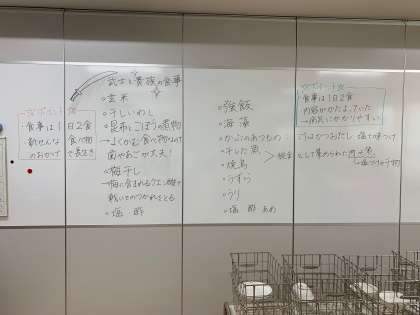 武士と貴族の食事
ワンポイント
・食事は1日2食
食べ物
のおかげで長生き
・玄米
・干しいわし
・昆布とごぼうの煮物
→よくかむ食べ物なので
歯やあごが丈夫!
・梅干し
→梅に含まれるクエン酸で
戦いでのつかれをとる
・塩 酢
・強飯
・海藻
・かぶのあつもの
・干した魚
・焼鳥
・うずら
・うり
・塩 酢 あめ
ワンポイント
・食事は1日2食
内容がかたよっていた
→病気にかかりやすい
ごぼうかつおだし 塩で味つけ
として集められた